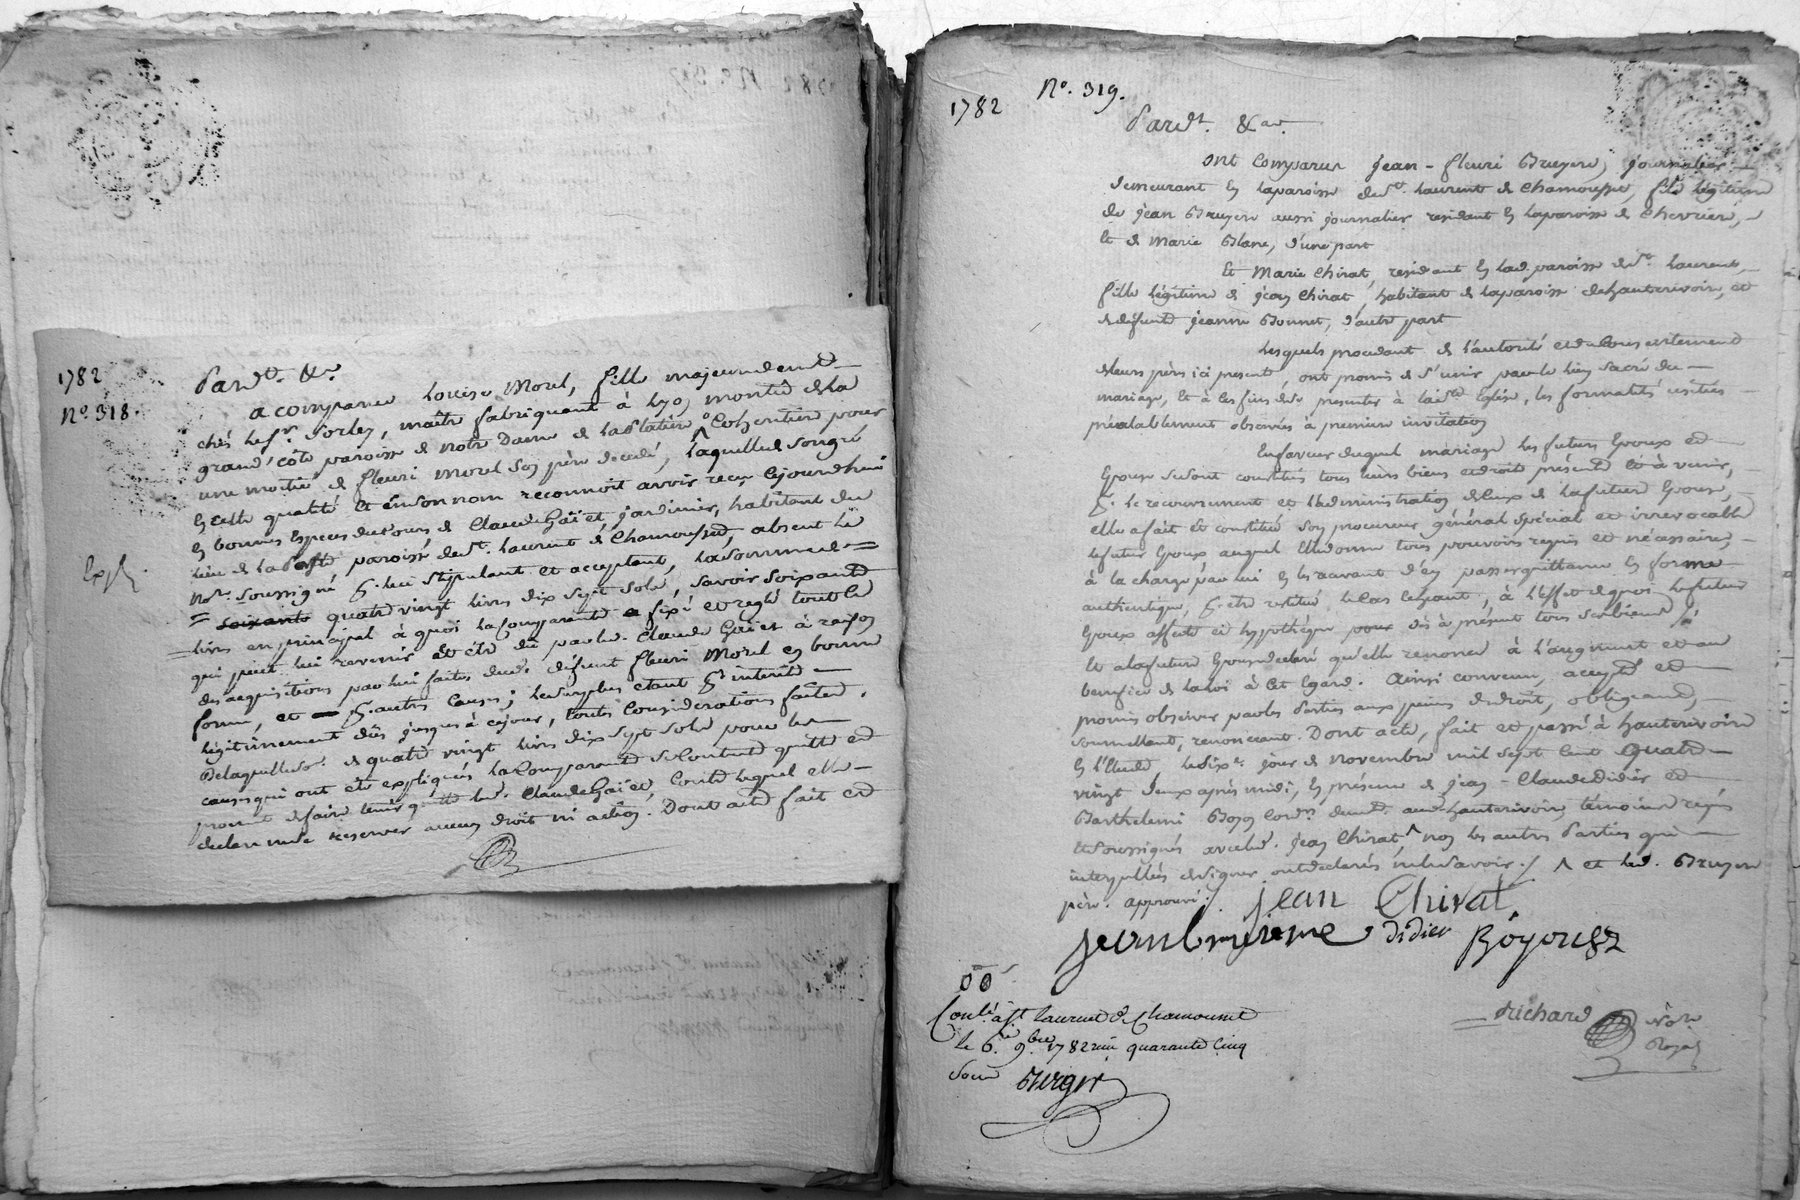 1782
N.º 318.
Pardt. &ca
a comparue Louise Morel, fille majeure demt
chés le Sr. Sorley, maitre fabriquant à Lyon montée de la
grand'côte paroisse de notre Dame de la Platiere cohéritiere pour
une moitié de fleuri Morel son père decedé, laquelle de son gré
en cette qualité et en son nom reconnoit avoir reçu cejourdhui
en bonnes especes du cours de Claude Gaïet, jardinier, habitant du
lieu de la paroisse de St. Laurent de Chamousset, absent le
Nore. soussigné pr. lui stipulant et acceptant, la somme de
= soixante quatre vingt livres dix sept sols, savoir soixante
livres en principal à quoi la comparante a fixé et reglé tout ce
qui peut lui revenir et être dû par led. Claude Gaïet à raison
des acquisitions par lui faites dud. défunt fleuri Morel en bonne
forme, et pr. autres causes; le surplus étant pr. interêts
légitimement dûs jusques à cejour, toutes considerations faites.
De laquelle so. de quatre vingt livres dix sept sols pour les
causes qui ont été expliquées la comparante se contente quitte et
promet de faire tenir quitte led. Claude Gaïet, contre lequel elle
declare ne se reserver aucun droit ni action. Dont acte fait et
Expe.
1782
N.º 319.
Pardt. &ca.
ont comparus jean-fleuri Bruyere, journalier
demeurant en la paroisse de St. Laurent de Chamousset, fils légitime
de jean Bruyere aussi journalier resident en la paroisse de Chevrieres,
et de Marie Blanc, d'une part
Et Marie Chirat, residente en lad. paroisse de St. Laurent,
fille légitime de jean Chirat, habitant de la paroisse de hauterivoire, et
de défunte jeanne Bonnet, d'autre part
Lesquels procedant de l'autorité et du consentement
de leurs pères ici presents, ont promis de s'unir par le lien sacré du
mariage, et à ces fins de se presenter à la ste Eglise, les formalités usitées
préalablement observées à premiere invitation
En faveur duquel mariage les futurs Epoux et
Epouse se sont constitués tous leurs biens et droits présents et à venir,
pr. le recouvrement et l'administration de ceux de la future Epouse,
elle a fait et constitué son procureur général spécial et irrevocable
le futur Epoux auquel elle donne tous pouvoirs requis et nécessaires,
à la charge par lui en les recevant d'en passer quittance en forme
authentique, pr. être restitué le cas échéant, à l'effet de quoi le futur
Epoux affecte et hypothéque pour dès à présent tous ses biens /.
et a la future Epouse declaré qu'elle renonce à l'augment et au
benefice de la loi à cet egard. Ainsi convenu, accepté et
promis observer par les Parties aux peines de droit, obligeant,
soumettant, renonceant. Dont acte, fait et passé à hauterivoire
en l'Etude le sixe. jour de novembre mil sept cent quatre
vingt deux après midi, en présence de jean-Claude Didier et
Barthelemi Boyon cordr. demts. aud. hauterivoire témoins requis
et soussignés avec led. jean Chirat, ^ non les autres Parties qui
interpellées de signer ont declarés ne le savoir./. ^ et led. Bruyere
père. approuvé./.
jean Chirat
Didier
Conlé. à St Laurent de Chamousset
le 6e. 9bre 1782 reçu quarante cinq
sous Berger
Richard
Nore.
Royal